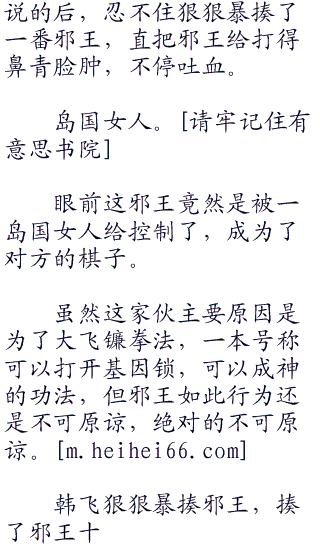 说的后，忍不住狠狠暴揍了
一番邪王，直把邪王给打得
鼻青脸肿，不停吐血。
岛国女人。[请牢记住有
意思书院]
眼前这邪王竟然是被一
岛国女人给控制了，成为了
对方的棋子。
虽然这家伙主要原因是
为了大飞镰拳法，一本号称
可以打开基因锁，可以成神
的功法，但邪王如此行为还
是不可原谅，绝对的不可原
谅。[m.heihei66.com]
韩飞狠狠暴揍邪王，揍
了邪王十